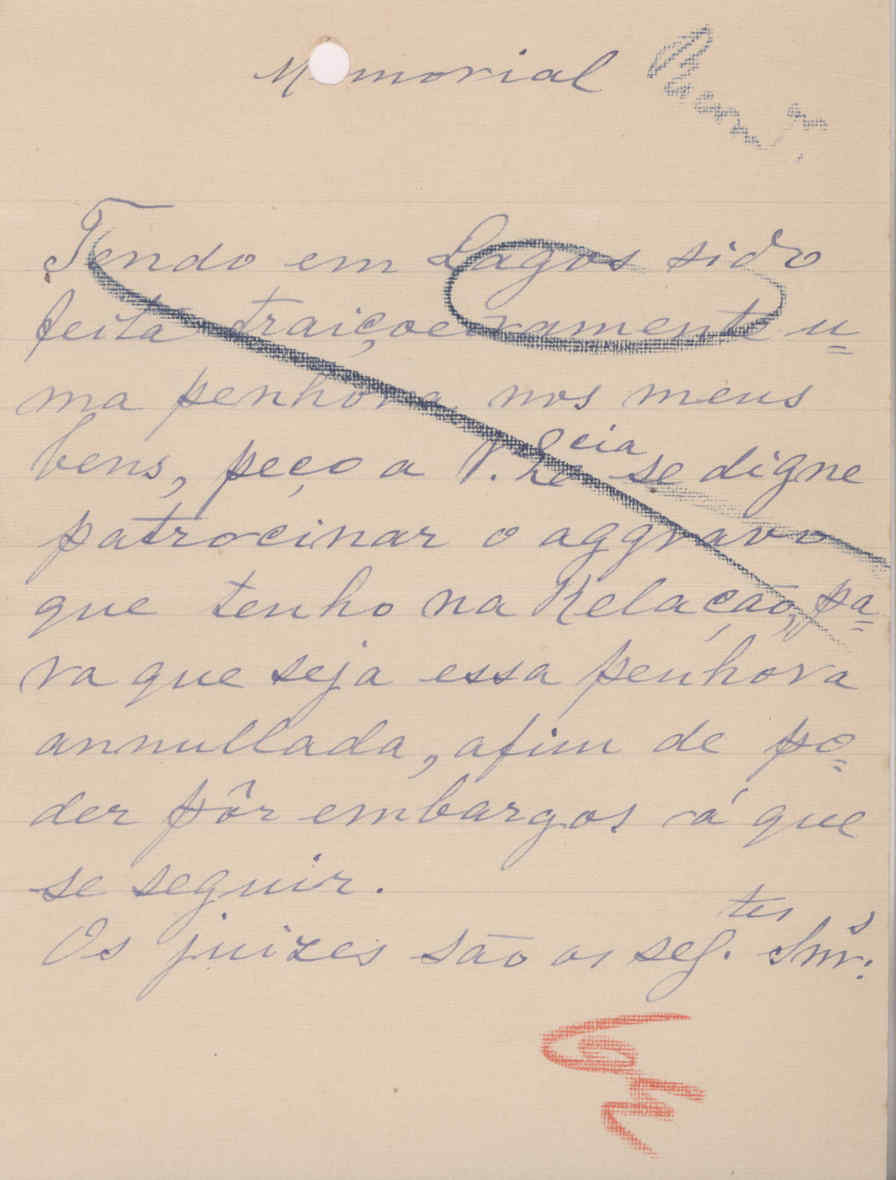 Memorial
Tendo em Lagos sido
feita traiçoeiramente u=
ma penhora nos meus
bens, peço a V. Ex.cia se digne
patrocinar o aggravo
que tenho na Relação, pa=
ra que seja essa penhora
annullada, afim de po=
der pôr embargos á que
se seguir.
Os juizes são os seg.tes Snrs: